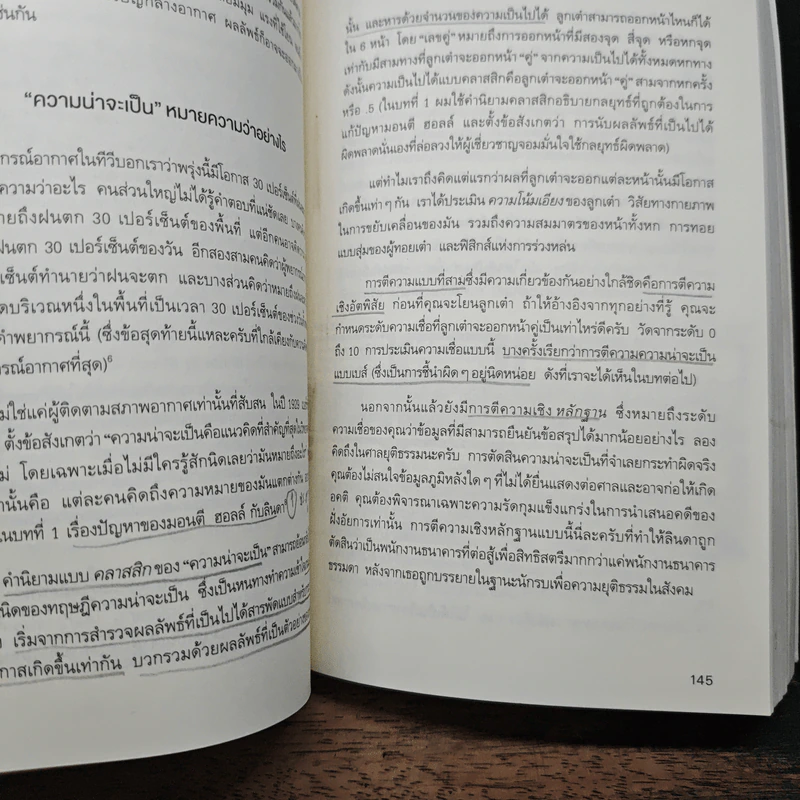 ญกลางอากาศ ผลลัพธ์ก็อาจจะ
ช่นกัน
“ความน่าจะเป็น” หมายความว่าอย่างไร
ากรณ์อากาศในทีวีบอกเราว่าพรุ่งนี้มีโอกาส 30 เปอร์เซ็นต์
ความว่าอะไร คนส่วนใหญ่ไม่ได้รู้คำตอบที่แน่ชัดเลย
ายถึงฝนตก 30 เปอร์เซ็นต์ของพื้นที่ แต่อีกคนอาจคิดว่า
ฝนตก 30 เปอร์เซ็นต์ของวัน อีกสองสามคนคิดว่าผู้พยากรณ์
เซ็นต์ทำนายว่าฝนจะตก และบางส่วนคิดว่าหมายถึงฝน
ตบริเวณหนึ่งในพื้นที่เป็นเวลา 30 เปอร์เซ็นต์ของ
คำพยากรณ์นี้ (ซึ่งข้อสุดท้ายนี้แหละครับที่ใกล้เคียงกับ
กรณ์อากาศที่สุด)6
ม่ใช่แค่ผู้ติดตามสภาพอากาศเท่านั้นที่สับสน ในปี 1929
ตั้งข้อสังเกตว่า “ความน่าจะเป็นคือแนวคิดที่สำคัญที่สุดใน
ม่ โดยเฉพาะเมื่อไม่มีใครรู้สักนิดเลยว่ามันหมายถึงอะไร”
านั้นคือ แต่ละคนคิดถึงความหมายของมันแตกต่างกัน
นบทที่ 1 เรื่องปัญหาของมอนตี ฮอลล์ กับลินดา 1
คำนิยามแบบ คลาสสิก ของ “ความน่าจะเป็น”
นิดของทฤษฎีความน่าจะเป็น ซึ่งเป็นหนทางทำความเข้าใจ
เริ่มจากการสำรวจผลลัพธ์ที่เป็นไปได้สารพัดแบบสำหรับ
กาสเกิดขึ้นเท่ากัน บวกรวมด้วยผลลัพธ์ที่เป็นตัวอย่าง
นั้น และหารด้วยจำนวนของความเป็นไปได้ ลูกเต๋าสามารถออกหน้าไหนก็ได้
ใน 6 หน้า โดย “เลขคู่” หมายถึงการออกหน้าที่มีสองจุด สี่จุด หรือหกจุด
เท่ากับมีสามทางที่ลูกเต๋าจะออกหน้า “คู่” จากความเป็นไปได้ทั้งหมดหกทาง
ดังนั้นความเป็นไปได้แบบคลาสสิกคือลูกเต๋าจะออกหน้า “คู่” สามจากหกครั้ง
หรือ .5 (ในบทที่ 1 ผมใช้คำนิยามคลาสสิกอธิบายกลยุทธ์ที่ถูกต้องในการ
แก้ปัญหามอนตี ฮอลล์ และตั้งข้อสังเกตว่า การนับผลลัพธ์ที่เป็นไปได้
ผิดพลาดนั่นเองที่ล่อลวงให้ผู้เชี่ยวชาญจอมมั่นใจใช้กลยุทธ์ผิดพลาด)
แต่ทำไมเราถึงคิดแต่แรกว่าผลที่ลูกเต๋าจะออกแต่ละหน้านั้นมีโอกาส
เกิดขึ้นเท่าๆ กัน เราได้ประเมิน ความโน้มเอียง ของลูกเต๋า วิสัยทางกายภาพ
ในการขยับเคลื่อนของมัน รวมถึงความสมมาตรของหน้าทั้งหก การทอย
แบบสุ่มของผู้ทอยเต๋า และฟิสิกส์แห่งการร่วงหล่น
การตีความแบบที่สามซึ่งมีความเกี่ยวข้องกันอย่างใกล้ชิดคือการตีความ
เชิงอัตพิสัย ก่อนที่คุณจะโยนลูกเต๋า ถ้าให้อ้างอิงจากทุกอย่างที่รู้ คุณจะ
กำหนดระดับความเชื่อที่ลูกเต๋าจะออกหน้าคู่เป็นเท่าไหร่ดีครับ วัดจากระดับ 0
ถึง 10 การประเมินความเชื่อแบบนี้ บางครั้งเรียกว่าการตีความความน่าจะเป็น
แบบเบส์ (ซึ่งเป็นการชี้นำผิดๆ อยู่นิดหน่อย ดังที่เราจะได้เห็นในบทต่อไป)
นอกจากนั้นแล้วยังมีการตีความเชิง หลักฐาน ซึ่งหมายถึงระดับ
ความเชื่อของคุณว่าข้อมูลที่มีสามารถยืนยันข้อสรุปได้มากน้อยอย่างไร ลอง
คิดถึงในศาลยุติธรรมนะครับ การตัดสินความน่าจะเป็นที่จำเลยกระทำผิดจริง
คุณต้องไม่สนใจข้อมูลภูมิหลังใดๆ ที่ไม่ได้ยื่นแสดงต่อศาลและอาจก่อให้เกิด
อคติ คุณต้องพิจารณาเฉพาะความรัดกุมแข็งแกร่งในการนำเสนอคดีของ
ฝั่งอัยการเท่านั้น การตีความเชิงหลักฐานแบบนี้นี่ละครับที่ทำให้ลินดาถูก
ตัดสินว่าเป็นพนักงานธนาคารที่ต่อสู้เพื่อสิทธิสตรีมากกว่าแค่พนักงานธนาคาร
ธรรมดา หลังจากเธอถูกบรรยายในฐานะนักรบเพื่อความยุติธรรมในสังคม
145